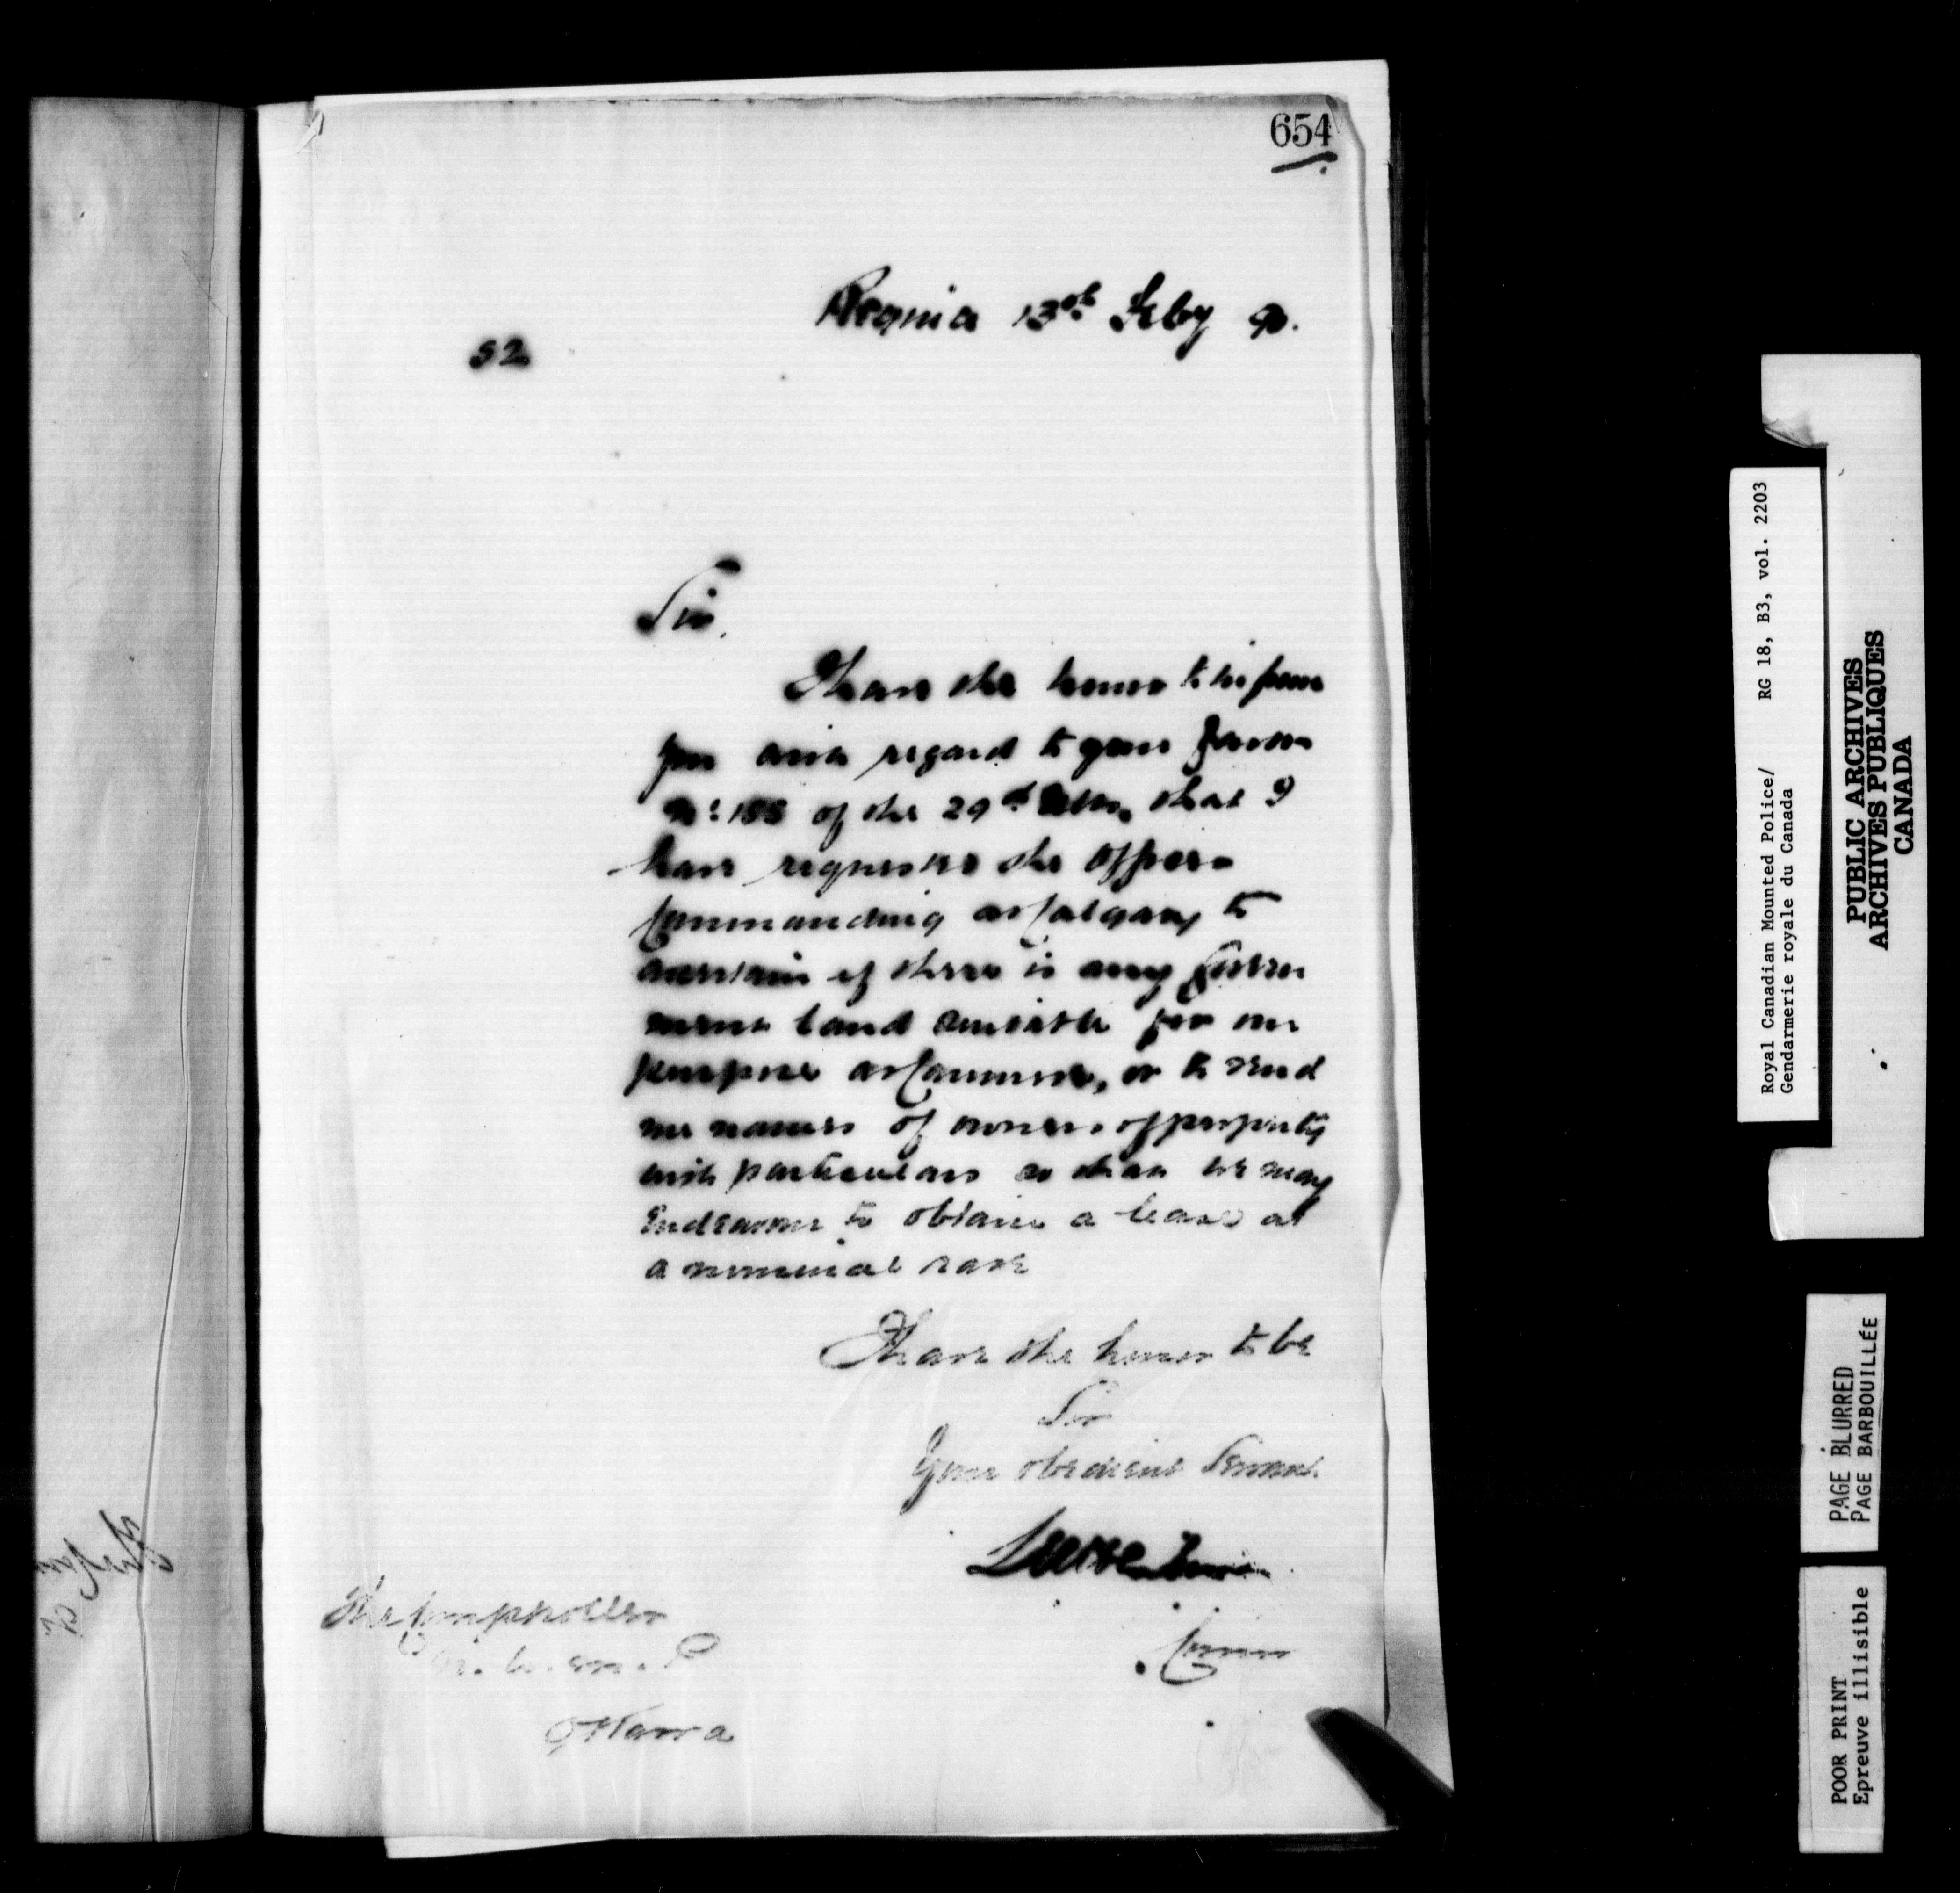 654
Regina 13th Feby 90.
52
Sir,
I have the honor to inform
you with regard to your favor
No: 188 of the 29th Ulto, that I
have requested the Officer
Commanding at Calgary to
ascertain if there is any Govern
ment land suitable for our
purpose at Canmore, or to send
me names of owners of property
with particulars so that we may
endeavour to obtain a lease at
a nominal rate
I have the honor to be
Sir
Your obedient Servant
Commr
The Comptroller
N. W. M. P
Ottawa
Royal Canadian Mounted Police/ RG 18, B3, vol. 2203
Gendarmerie royale du Canada
PUBLIC ARCHIVES
ARCHIVES PUBLIQUES
CANADA
PAGE BLURRED
PAGE BARBOUILLÉE
POOR PRINT
Epreuve illisible